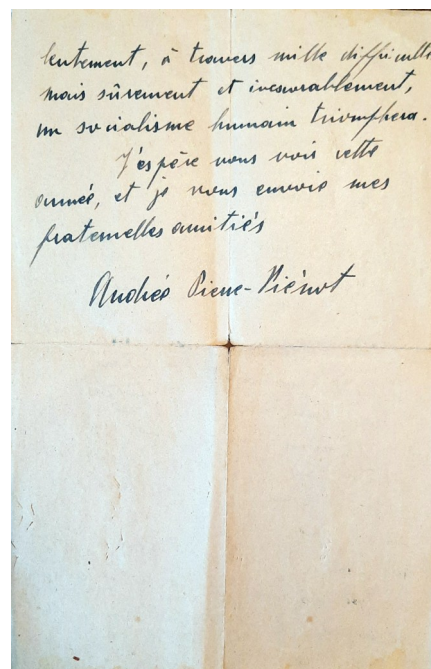 lentement, à travers mille difficultés
mais sûrement et inexorablement,
un socialisme humain triomphera.
J'espère vous voir cette
année, et je vous envoie mes
fraternelles amitiés
Andrée Pierre-Viénot